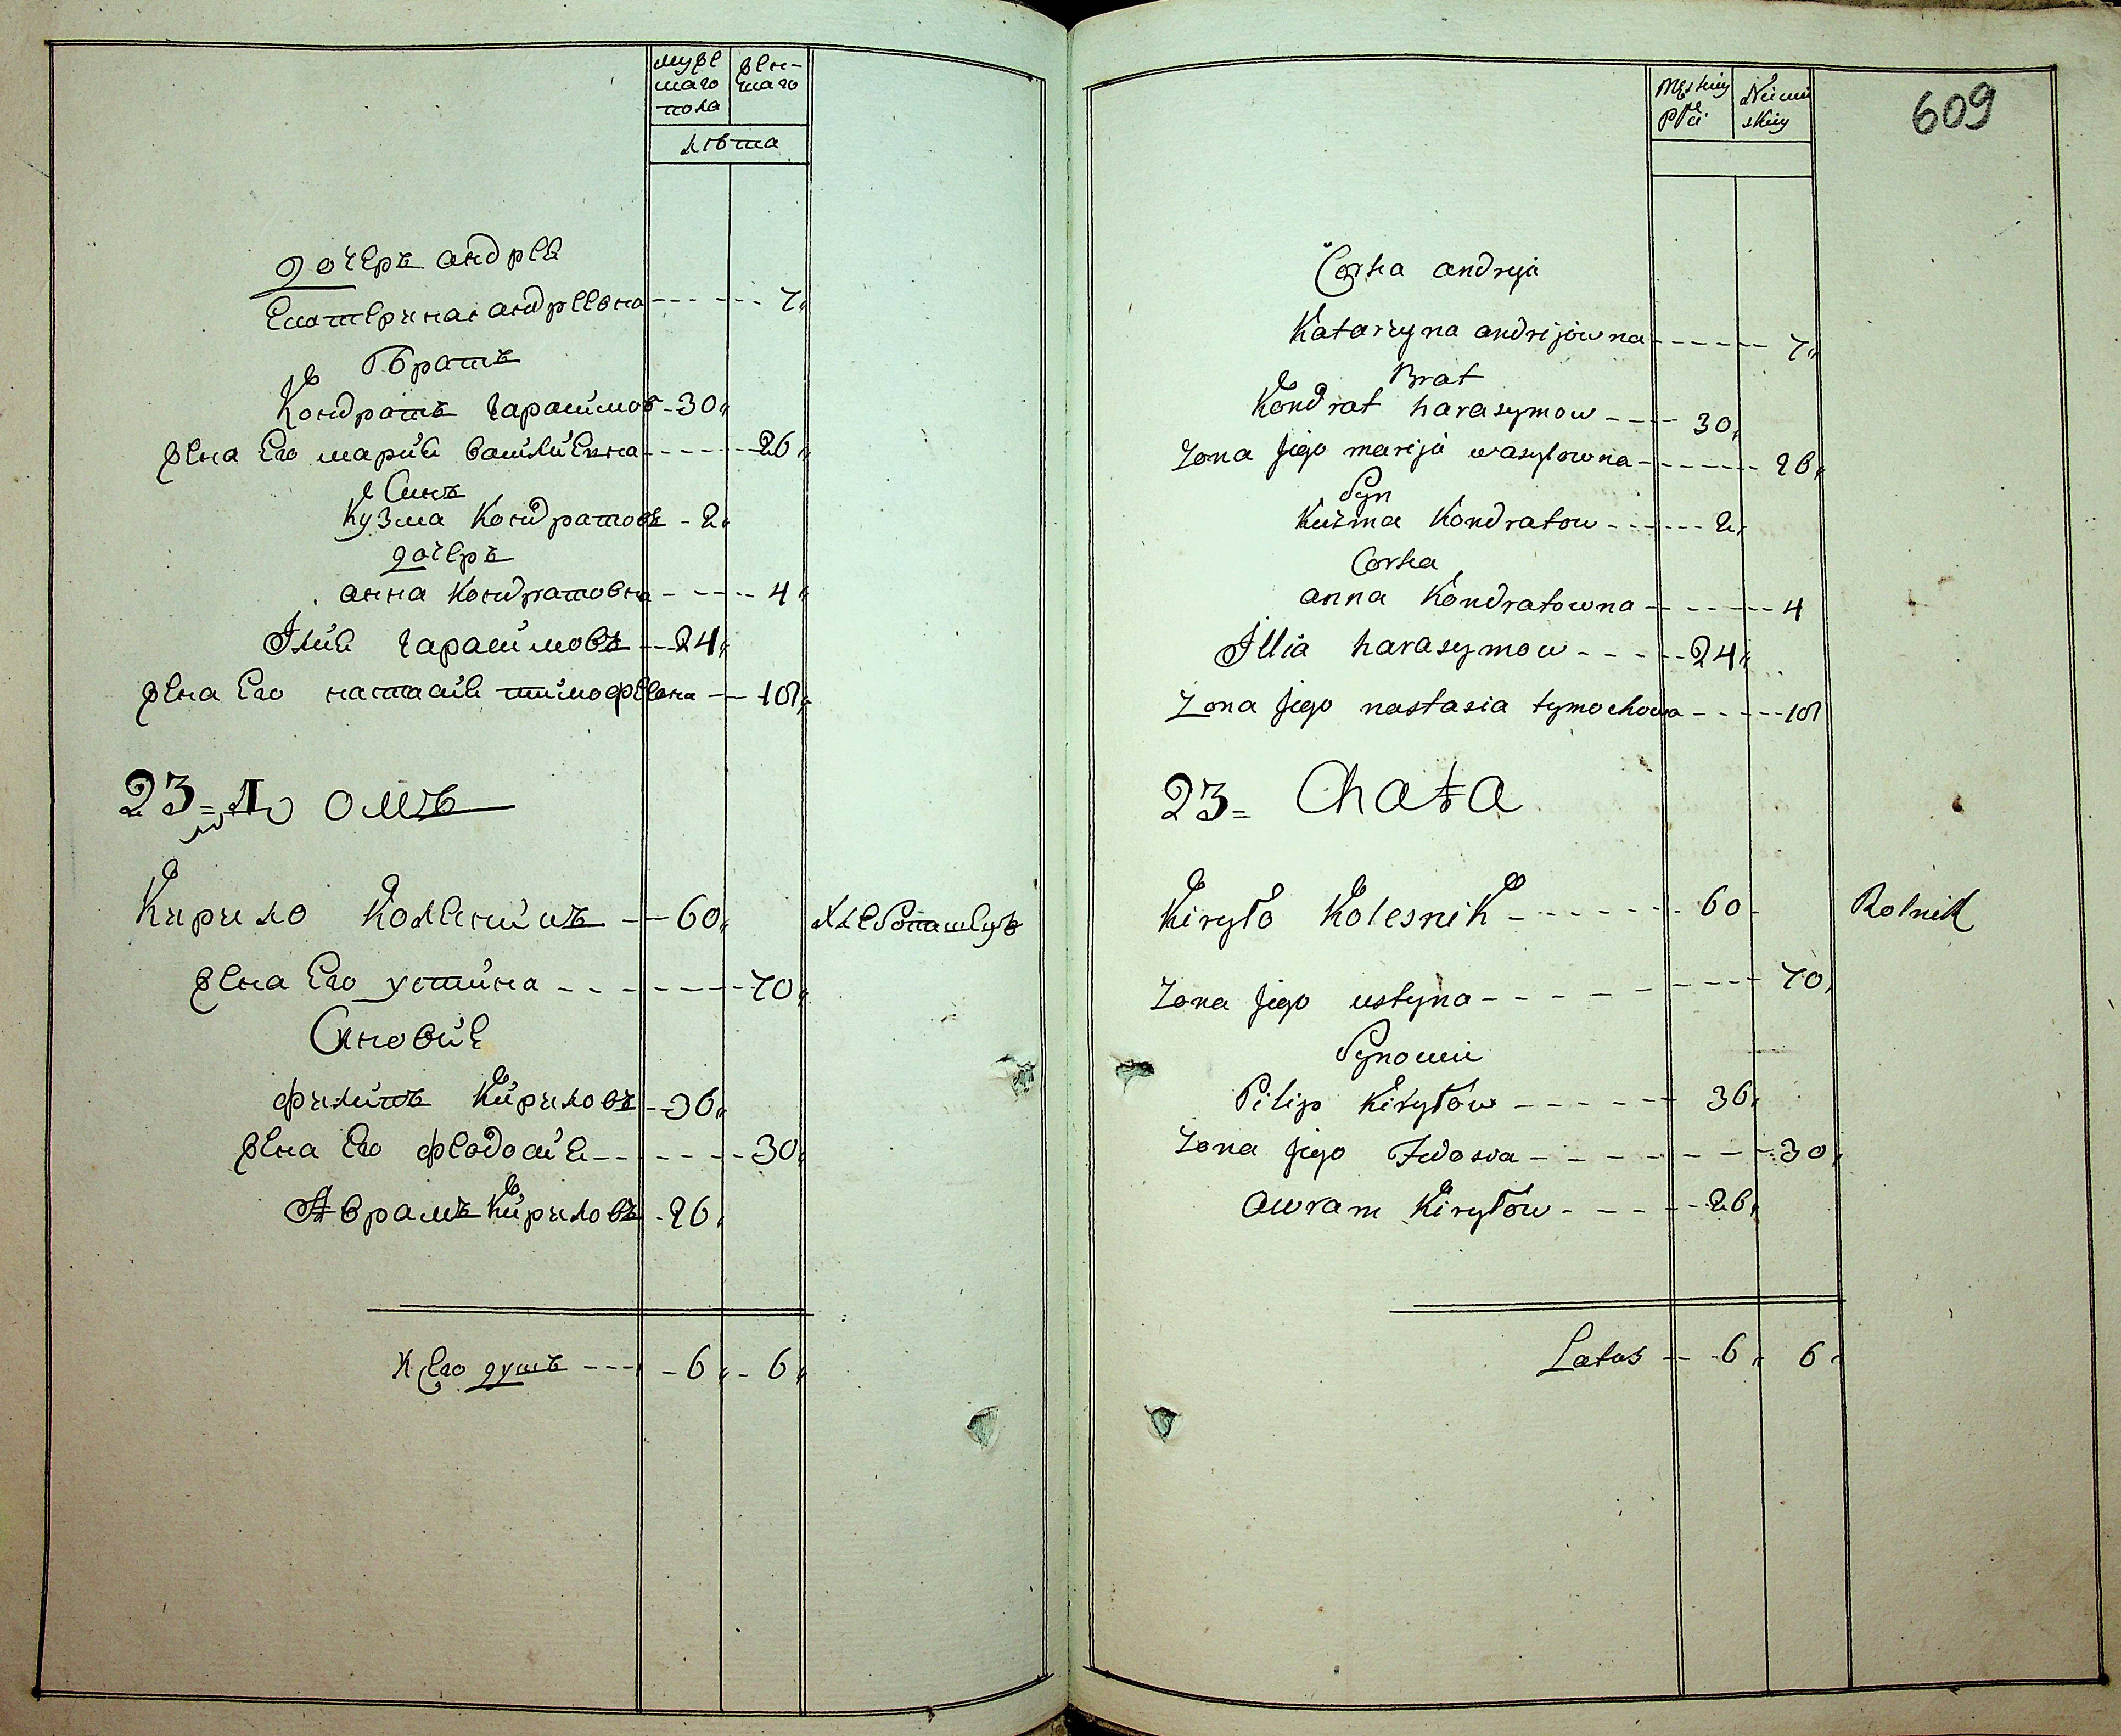 мужескаго пола
женскаго
лѣта
дочерь андрея
Екатерина андреевна 7
Братъ
Кондратъ гарасимов 30
жена Его мария василиевна 26
Синъ
Кузма Кондратовъ 2
дочерь
анна Кондратовна 4
Илия гарасимовъ 24
жена Его настасия тимофеевна 18
23= Домъ
Кирило Колесникъ 60 Хлебопашецъ
жена Его устина 70
Синовие
филипъ Кириловъ 36
жена Его феодосия 30
Аврамъ Кириловъ 26
душъ 6 6
609
Męskiey Płci
Corka andryja
Katarzyna andrijowna 7
Brat
Kondrat harasymow 30
Zona jego marija wasylowna 26
Syn
Kuzma Kondratow 2
Corka
anna Kondratowna 4
Illia harasymow 24
Zona jego nastasia tymochowa 18
23= Chata
Kiryło Kolesnik 60 Rolnik
Zona jego ustyna 70
Synowie
Pilip Kiryłow 36
Zona jego 30
awram Kiryłow 26
Latus 6 6